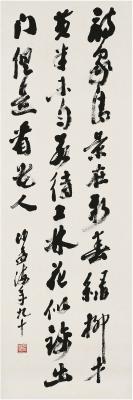 詩家清景在新春綠柳才
黃半未勻若待上林花似錦出
門俱是看花人
沙孟海年九十